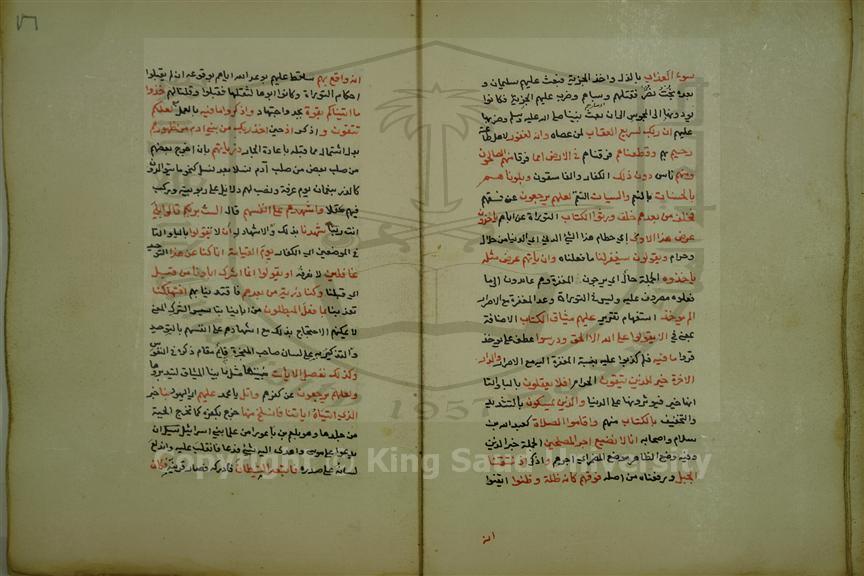 سوء العذاب بالذل واخذ الجزية فبعث عليهم سليمان و
بعده بخت نصر فقتلهم وسباهم وضرب عليهم الجزية فكانوا
يؤدونها الى المجوس الى ان بعث نبينا صلى الله عليه وسلم وضربها
عليهم ان ربك لسريع العقاب لمن عصاه وانه لغفور لاهل طاعته
رحيم بهم وقطعناهم فرقناهم في الارض امما فرقا منهم الصالحون
ومنهم ناس دون ذلك الكفار والفاسقون وبلوناهم
بالحسنات بالنعم والسيات النقم لعلهم يرجعون عن فسقهم
فخلف من بعدهم خلف ورثوا الكتاب التوراة عن ابائهم ياخذون
عرض هذا الادنى اي حطام هذا الشي الدني اي الدنيا من حلال
وحرام ويقولون سيغفر لنا ما فعلناه وان ياتهم عرض مثله
ياخذوه الجملة حال اي يرجون المغفرة وهم عائدون الى ما
فعلوه مصرون عليه وليس في التوراة وعد المغفرة مع الاصرار
الم يوخذ استفهام تقرير عليهم ميثاق الكتاب الاضافة
بمعنى في ان لا يقولوا على الله الا الحق ودرسوا عطف على يوخذ
قروا ما فيه فلم كذبوا عليه بنسبة المغفرة اليه مع الاصرار والدار
الاخرة خير للذين يتقون الحرام افلا يعقلون بالياء والتا
انها خير فيوثرونها على الدنيا والذين يمسكون بالتشديد
والتخفيف بالكتاب منهم واقاموا الصلاة كعبد الله بن
سلام واصحابه انا لا نضيع اجر المصلحين الجملة خبر الذين
وفيه وضع الظاهر موضع المضمر اي اجرهم واذكر اذ نتقنا
الجبل رفعناه من اصله فوقهم كانه ظلة وظنوا ايقنوا
انه
انه واقع بهم ساقط عليهم بوعد الله اياهم بوقوعه ان لم يقبلوا
احكام التوراة وكانوا ابوها لثقلها فقبلوا وقلنا لهم خذوا
ما اتيناكم بقوة بجد واجتهاد واذكروا ما فيه بالعمل به لعلكم
تتقون واذكر اذ حين اخذ ربك من بني ادم من ظهورهم
بدل اشتمال مما قبله باعادة الجار ذريتهم بان اخرج بعضهم
من صلب بعض من صلب آدم نسلا بعد نسل كنحو ما يتوالدون
كالذر بنعمان يوم عرفة ونصب لهم دلايل على ربوبيته وركب
فيهم عقلا واشهدهم على انفسهم قال الست بربكم قالوا بلى
انت ربنا شهدنا بذلك والاشهاد ل ان لا يقولوا بالياء والتا
في الموضعين اي الكفار يوم القيامة انا كنا عن هذا التوحيد
غافلين لا نعرفه او يقولوا انما اشرك اباونا من قبل
اي قبلنا وكنا ذرية من بعدهم فاقتدينا بهم افتهلكنا
تعذبنا بما فعل المبطلون من ابائنا بتاسيس الشرك المعنى
لا يمكنهم الاحتجاج بذلك مع اشهادهم على انفسهم بالتوحيد
والتذكير به على لسان صاحب المعجزة قائم مقام ذكره في النفوس
وكذلك نفصل الايات نبينها مثل ما بينا الميثاق ليتدبروها
ولعلهم يرجعون عن كفرهم واتل يا محمد عليهم اي اليهود نبا خبر
الذي اتيناه اياتنا فانسلخ منها خرج بكفره كما تخرج الحية
من جلدها وهو بلعم بن باعورا من علما بني اسرائيل سيل ان
يدعوا على موسى واهدي اليه شي فدعا فانقلب عليه واندلع
لسانه على صدره فاتبعه الشيطان فادركه فصار قرينه فكان
Copyright © King Saud University
1957